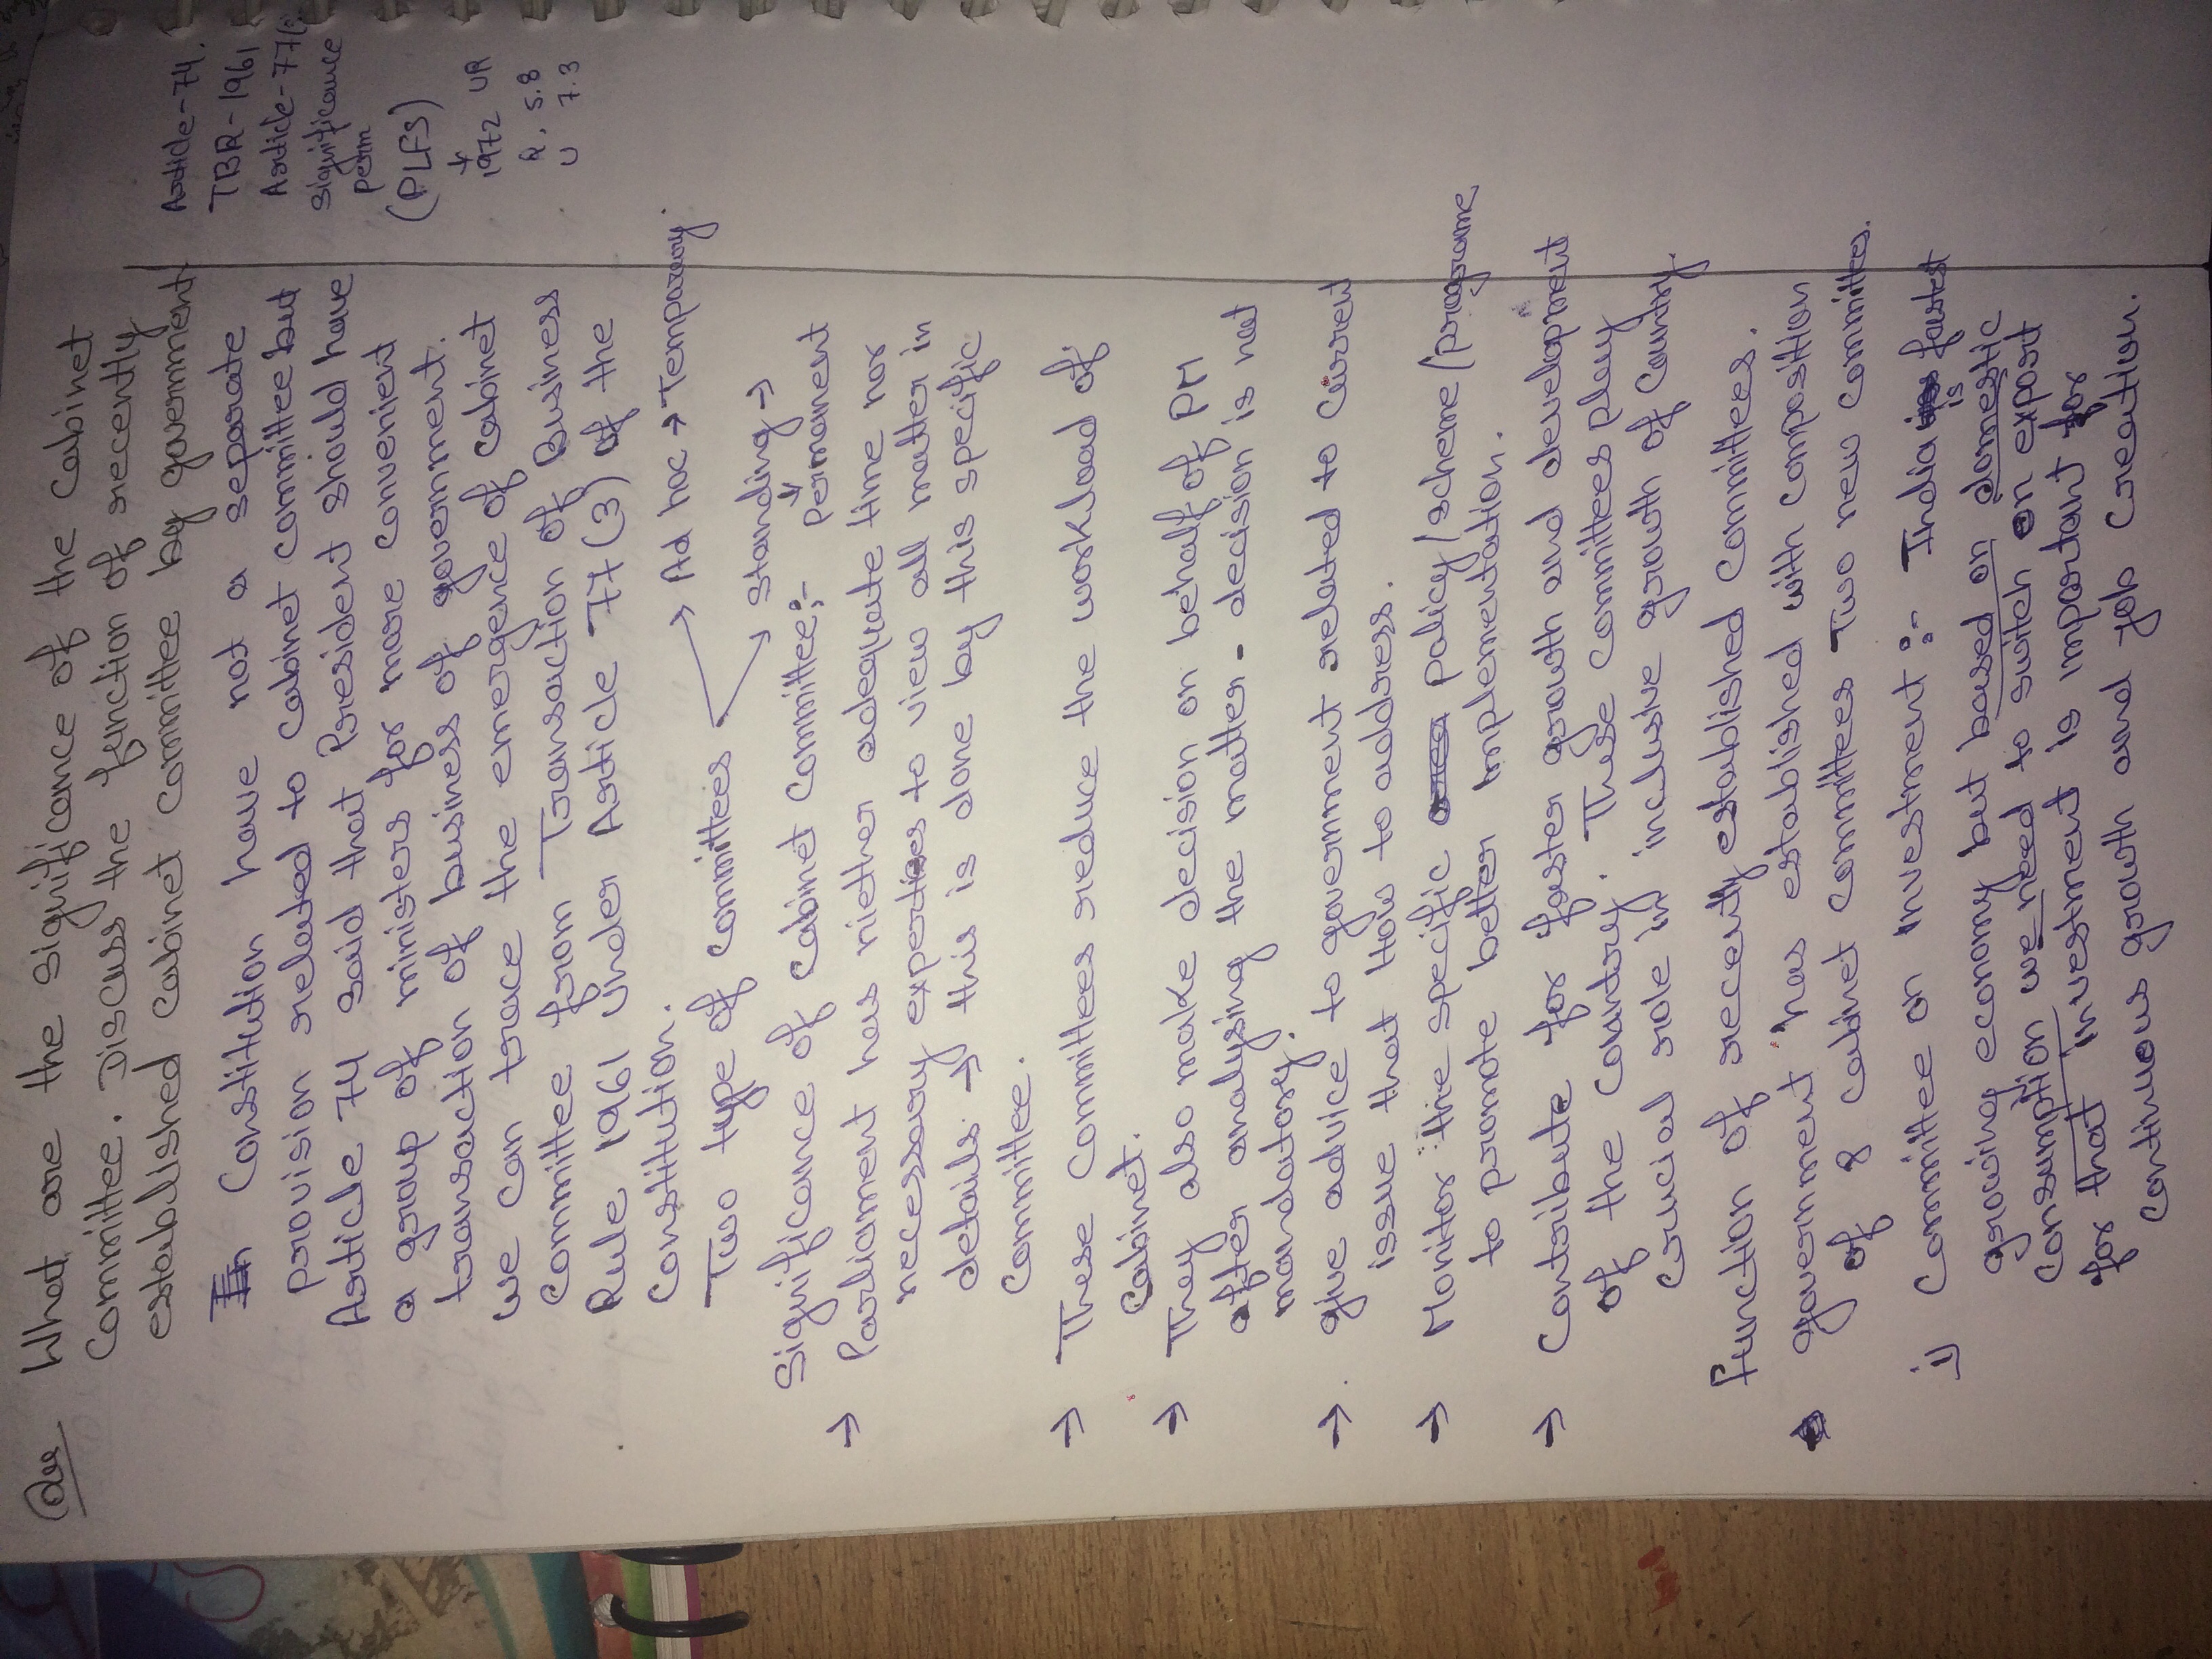 Que What are the significance of the Cabinet
Committee. Discuss the function of recently
established cabinet committee by government
Constitution have not a separate
provision related to cabinet committee but
Article 74 said that President should have
a group of ministers for more convenient
transaction of business of government.
we can trace the emergence of cabinet
Committee from Transaction of Business
Rule 1961 under Article 77(3) of the
Constitution.
Two type of committees → Ad hoc → Temporary.
→ standing →
↓
permanent
Significance of Cabinet Committee:-
→ Parliament has niether adequate time nor
necessary experties to view all matter in
details → this is done by this specific
Committee.
→ These Committees reduce the workload of
Cabinet.
→ They also make decision on behalf of PM
after analysing the matter - decision is not
mandatory.
→ give advice to government related to Curret
issue that How to address.
→ Monitor the specific policy/scheme/programe
to promote better implementation.
→ Contribute for faster growth and development
of the country. These committees play
crucial role in inclusive growth of country.
function of recently established Committees.
government has established with composition
of 8 cabinet committees Two new committes.
i) Committee on investment :- India is fastest
growing economy but based on domestic
Consumption we need to switch on export
for that investment is important for
continuous growth and job creation.
Article-74.
TBR-1961
Article-77(
significance
perm
(PLFS)
↓
1972 UR
R. 5.8
U 7.3